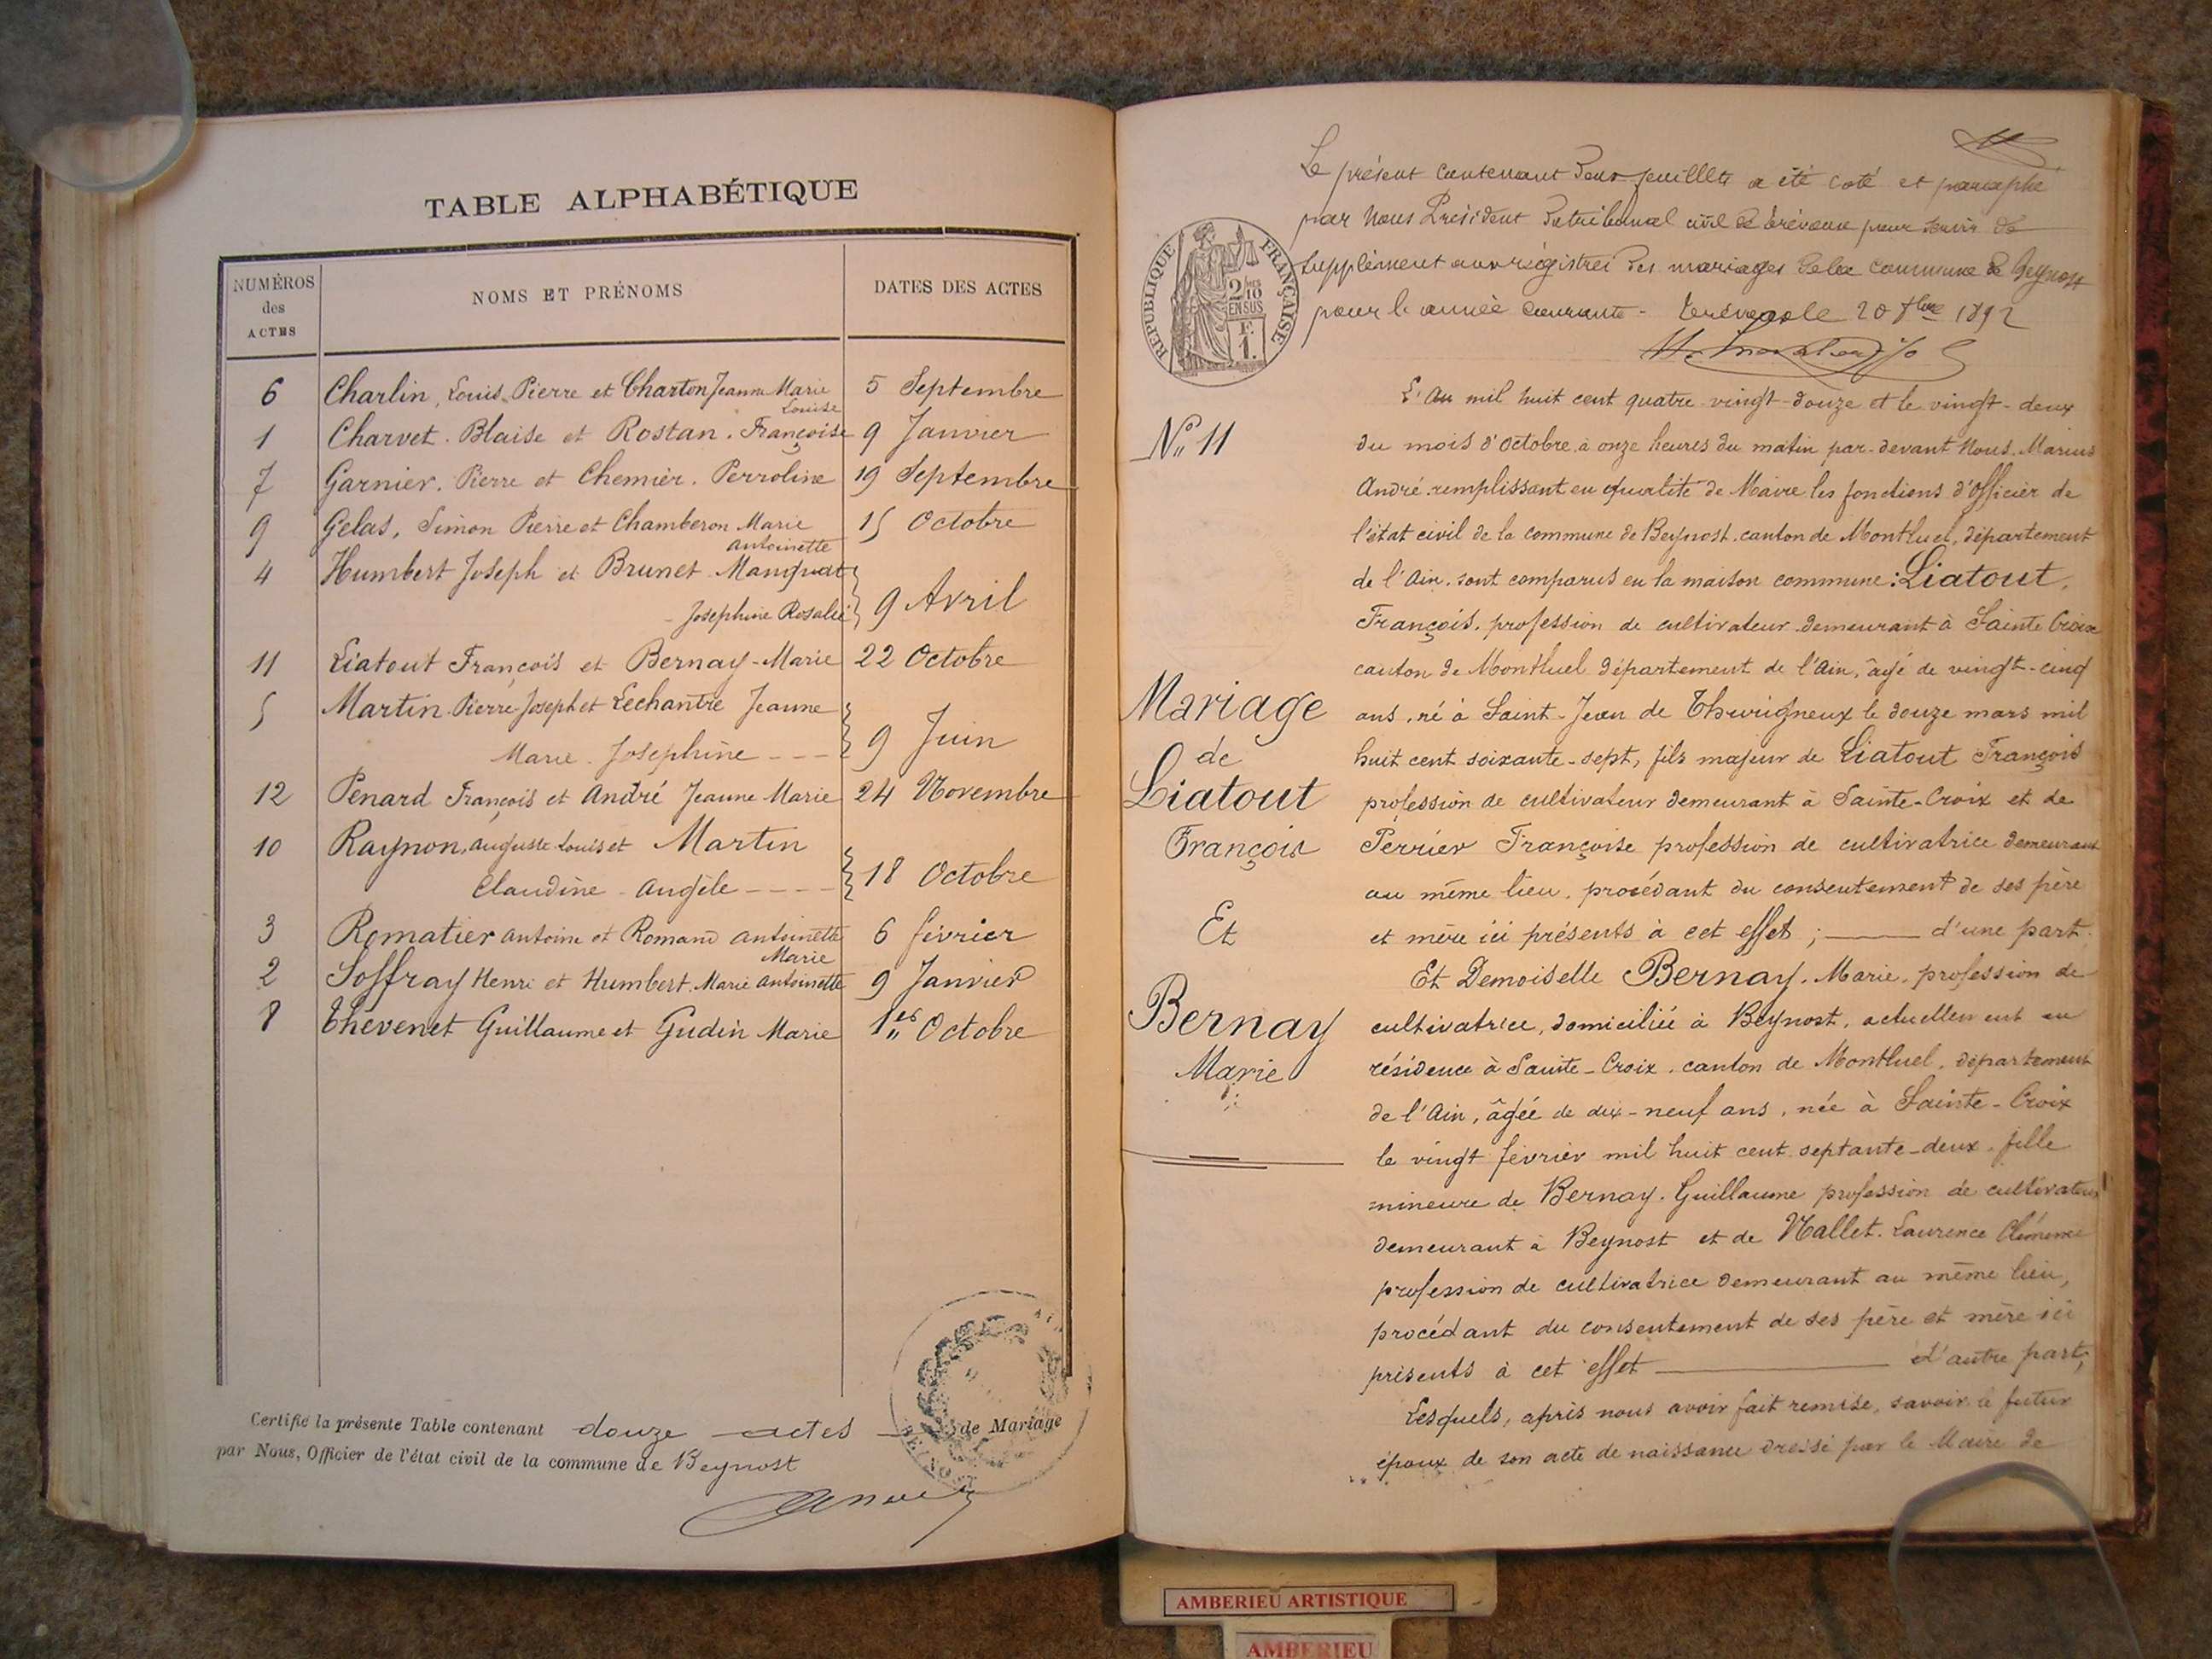 TABLE ALPHABÉTIQUE
NUMÉROS des ACTES
NOMS ET PRÉNOMS
DATES DES ACTES
6 Charlin, Louis Pierre et Charton Jeanne Marie Louise 5 Septembre
1 Charvet. Blaise et Rostan. Françoise 9 Janvier
7 Garnier. Pierre et Chemier. Perroline 19 Septembre
9 Gelas, Simon Pierre et Chamberon Marie Antoinette 15 Octobre
4 Humbert Joseph et Brunet Manquat
Josephine Rosalie 9 Avril
11 Liatout François et Bernay-Marie 22 Octobre
5 Martin Pierre Joseph et Lechantre Jeanne
Marie. Josephine 9 Juin
12 Penard François et André Jeanne Marie 24 Novembre
10 Raynon, Auguste Louis et Martin
Claudine - Angèle 18 Octobre
3 Romatier Antoine et Romand Antoinette Marie 6 février
2 Soffray Henri et Humbert. Marie Antoinette 9 Janvier
8 Thévenet Guillaume et Gudin Marie 1er Octobre
Certifié la présente Table contenant douze actes de Mariage
par Nous, Officier de l'état civil de la commune de Beynost
BEYNOST
Le présent contenant deux feuillets a été coté et paraphé
par Nous Président du tribunal civil de Trévoux pour servir de
supplément aux régistres des mariages de la commune de Beynost
pour l'année courante - Trévoux le 20 8bre 1892
RÉPUBLIQUE FRANÇAISE
2/10 EN SUS
F. 1.
N° 11
Mariage
de
Liatout
François
Et
Bernay
Marie
L'An mil huit cent quatre vingt-douze et le vingt-deux
du mois d'Octobre à onze heures du matin par-devant Nous. Marius
André remplissant en qualité de Maire les fonctions d'Officier de
l'état civil de la commune de Beynost. canton de Montluel, département
de l'Ain. sont comparus en la maison commune: Liatout.
François. profession de cultivateur demeurant à Sainte Croix
canton de Montluel département de l'Ain, âgé de vingt-cinq
ans, né à Saint-Jean de Thurigneux le douze mars mil
huit cent soixante-sept, fils majeur de Liatout François
profession de cultivateur demeurant à Sainte-Croix et de
Perrier Françoise profession de cultivatrice demeurant
au même lieu. procédant du consentement de ses père
et mère ici présents à cet effet ; d'une part.
Et Demoiselle Bernay. Marie. profession de
cultivatrice, domiciliée à Beynost, actuellement en
résidence à Sainte-Croix. canton de Montluel. département
de l'Ain, âgée de dix-neuf ans, née à Sainte-Croix
le vingt février mil huit cent septante-deux, fille
mineure de Bernay. Guillaume profession de cultivateur
demeurant à Beynost et de Mallet. Laurence Clémence
profession de cultivatrice demeurant au même lieu,
procédant du consentement de ses père et mère ici
présents à cet effet d'autre part;
Lesquels, après nous avoir fait remise, savoir le futur
époux de son acte de naissance dressé par le Maire de
AMBERIEU ARTISTIQUE
AMBERIEU